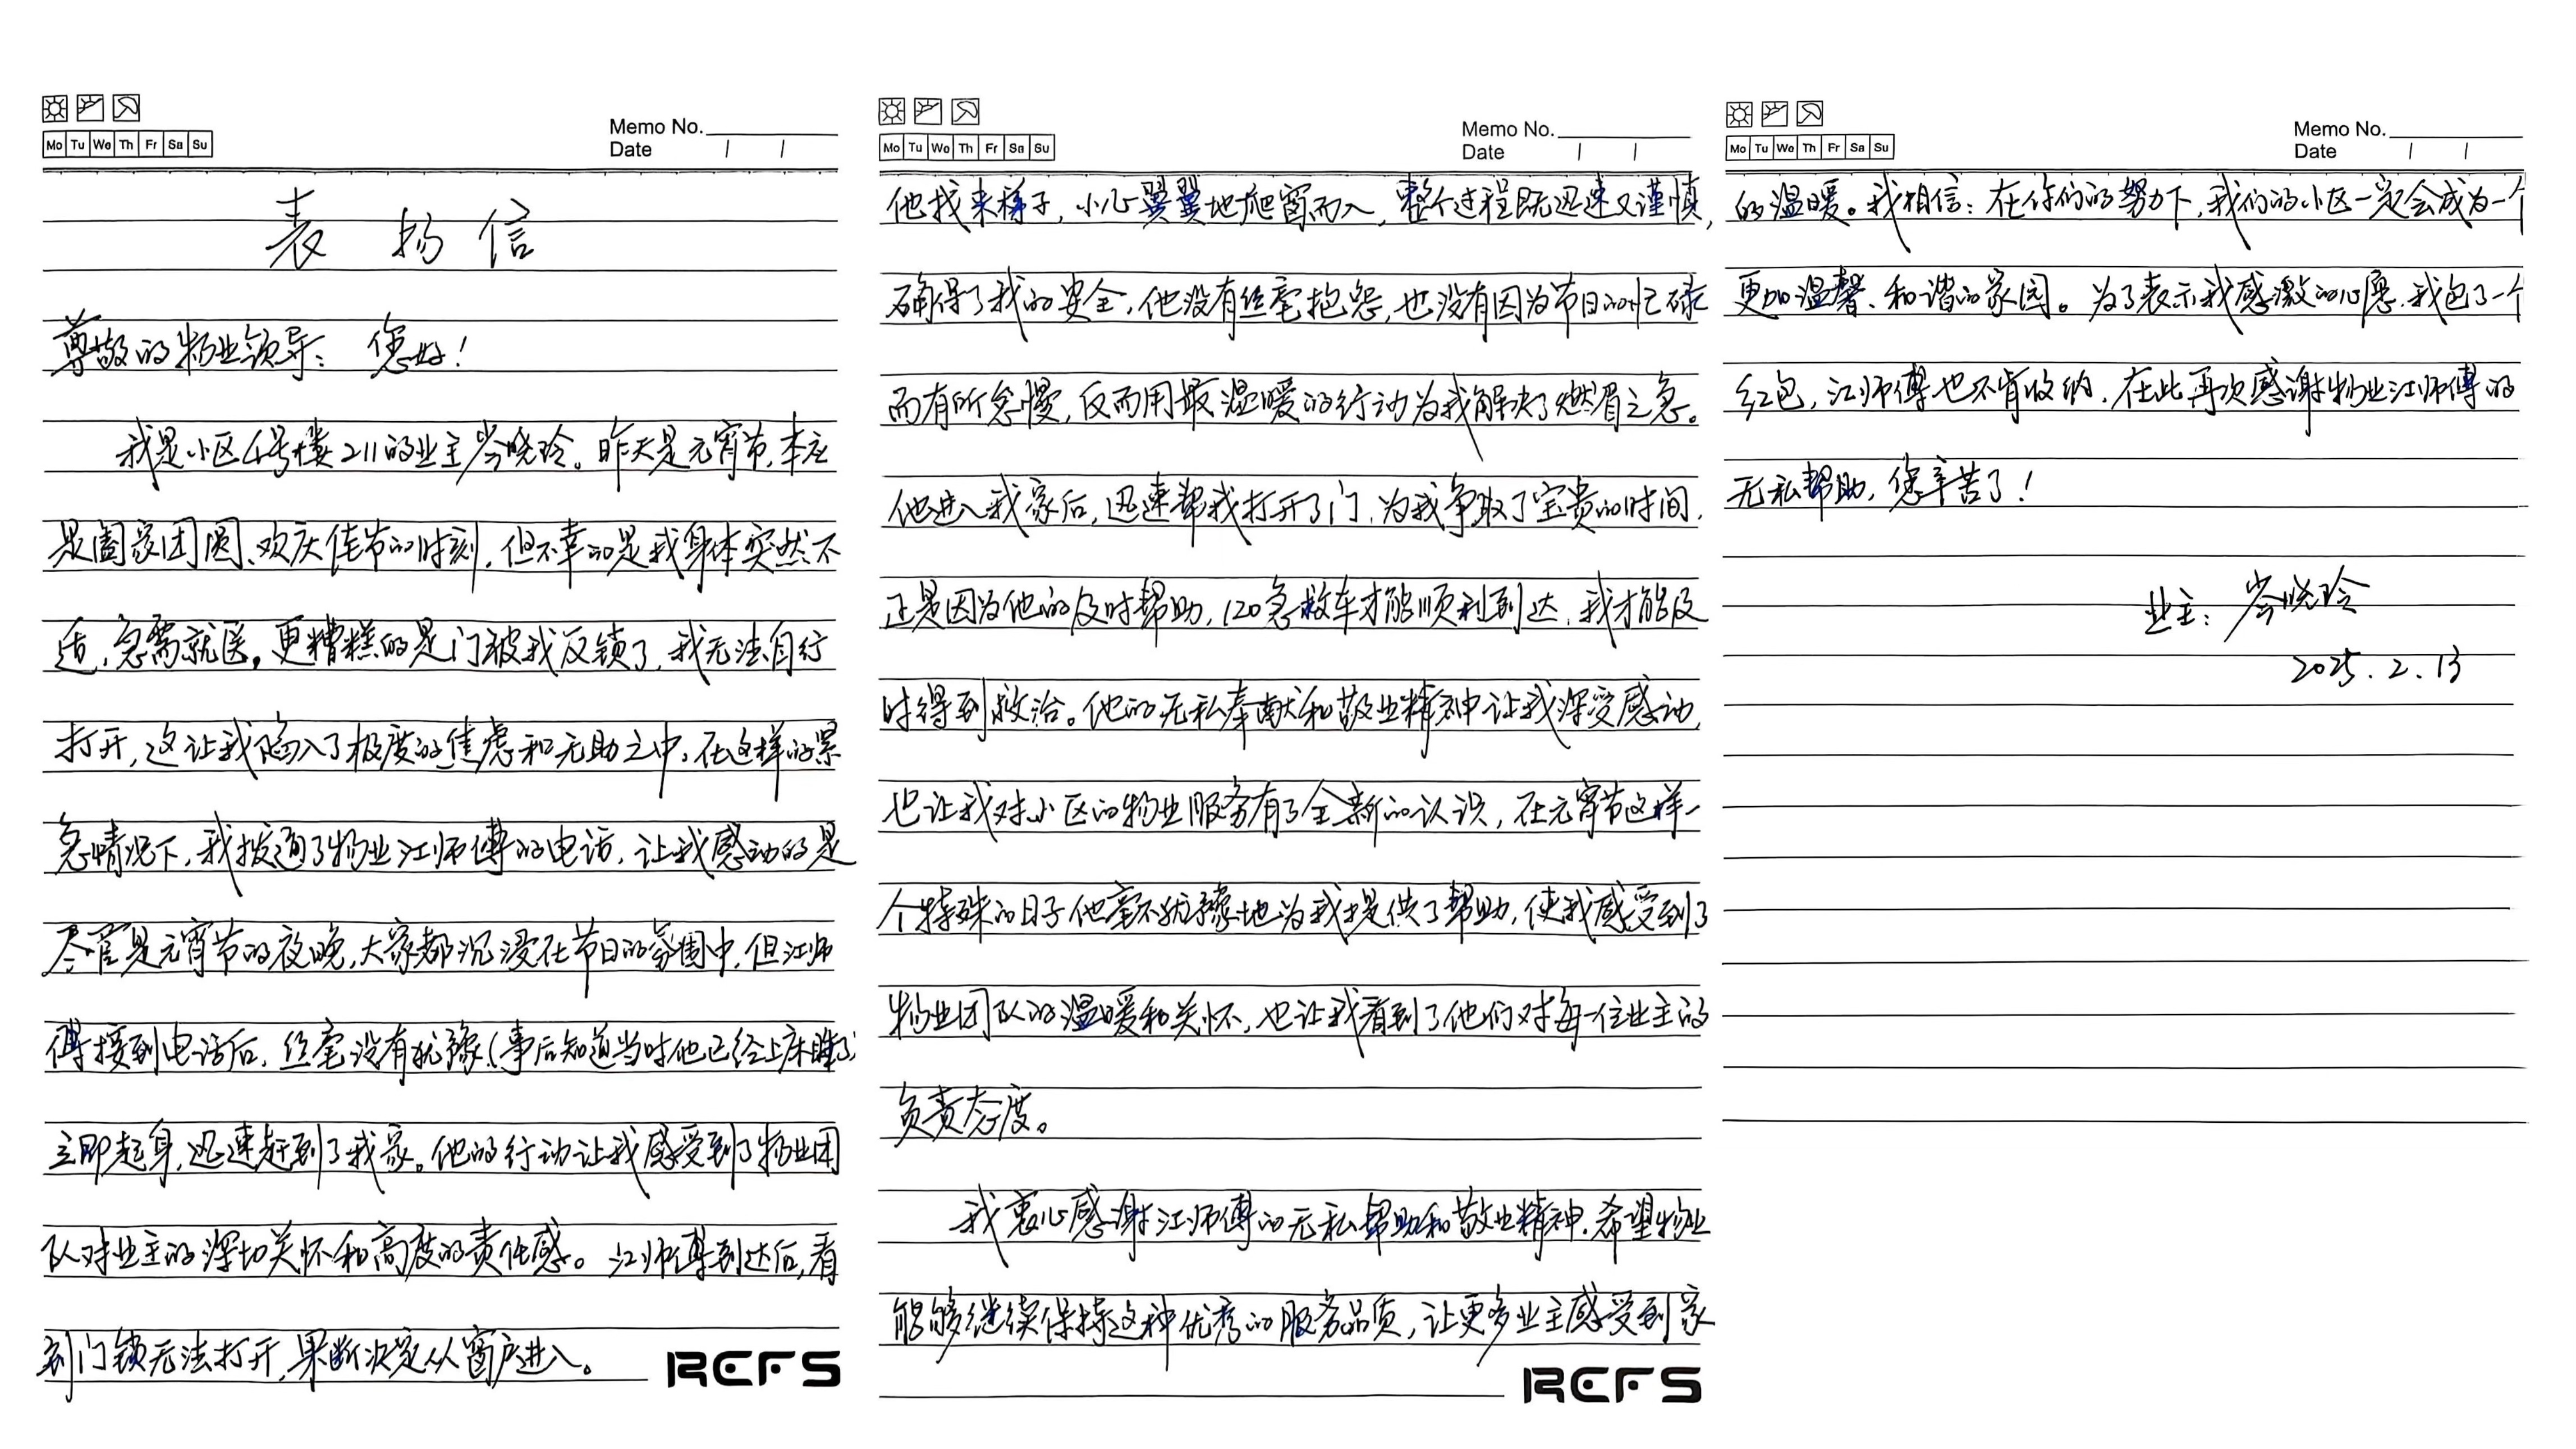 Mo Tu We Th Fr Sa Su
Memo No.
Date / /
表扬信
尊敬的物业领导：您好！
我是小区4号楼211的业主岑晓玲。昨天是元宵节，本应
是阖家团圆、欢庆佳节的时刻，但不幸的是我身体突然不
适，急需就医。更糟糕的是门被我反锁了，我无法自行
打开，这让我陷入了极度的焦虑和无助之中，在这样的紧
急情况下，我拨通了物业江师傅的电话，让我感动的是
尽管是元宵节的夜晚，大家都沉浸在节日的氛围中，但江师
傅接到电话后，丝毫没有犹豫（事后知道当时他已经上床睡了）
立即起身，迅速赶到了我家。他的行动让我感受到了物业团
队对业主的深切关怀和高度的责任感。江师傅到达后，看
到门锁无法打开，果断决定从窗户进入。
REFS
Mo Tu We Th Fr Sa Su
Memo No.
Date / /
他找来梯子，小心翼翼地爬窗而入，整个过程既迅速又谨慎，
确保了我的安全，他没有丝毫抱怨，也没有因为节日的忙碌
而有所怠慢，反而用最温暖的行动为我解决了燃眉之急。
他进入我家后，迅速帮我打开了门，为我争取了宝贵的时间，
正是因为他的及时帮助，120急救车才能顺利到达，我才能及
时得到救治。他的无私奉献和敬业精神让我深受感动，
也让我对小区的物业服务有了全新的认识，在元宵节这样一
个特殊的日子他毫不犹豫地为我提供了帮助，使我感受到了
物业团队的温暖和关怀，也让我看到了他们对每一位业主的
负责态度。
我衷心感谢江师傅的无私帮助和敬业精神，希望物业
能够继续保持这种优秀的服务品质，让更多业主感受到家
REFS
Mo Tu We Th Fr Sa Su
Memo No.
Date / /
的温暖。我相信：在你们的努力下，我们的小区一定会成为一个
更加温馨、和谐的家园。为了表示我感激的心愿，我包了一个
红包，江师傅也不肯收纳，在此再次感谢物业江师傅的
无私帮助，您辛苦了！
业主：岑晓玲
2025.2.13